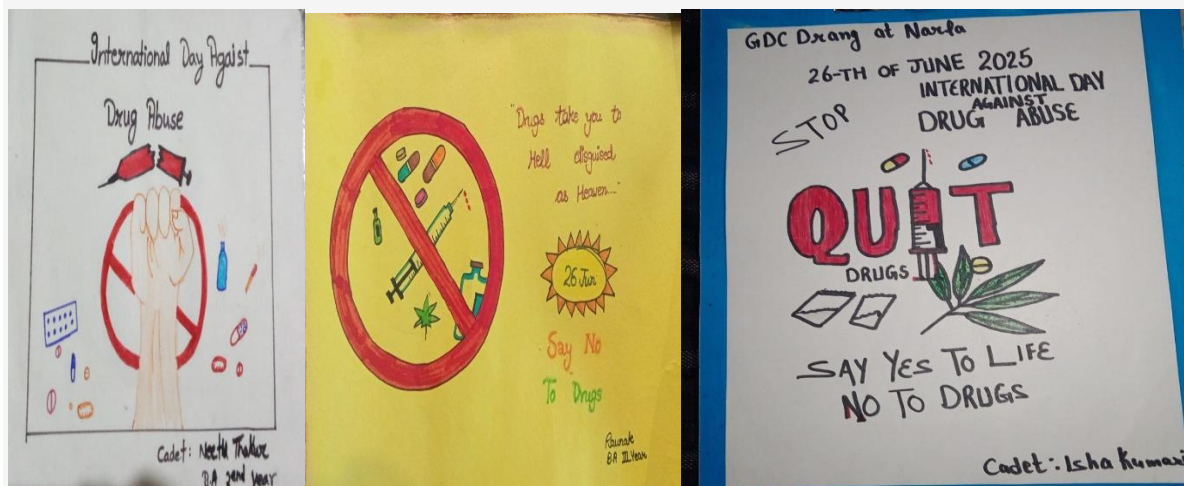 International Day Agaist
Drug Abuse
Cadet: Neetu Thakur
B.A 2nd Year
"Drugs take you to
Hell disguised
as Heaven..."
26 Jun
Say No
To Drugs
Raunak
B.A III Year
GDC Drang at Narla
26-TH OF JUNE 2025
INTERNATIONAL DAY
AGAINST
DRUG ABUSE
STOP
QUIT
DRUGS
SAY YES TO LIFE
NO TO DRUGS
Cadet:- Isha Kumari